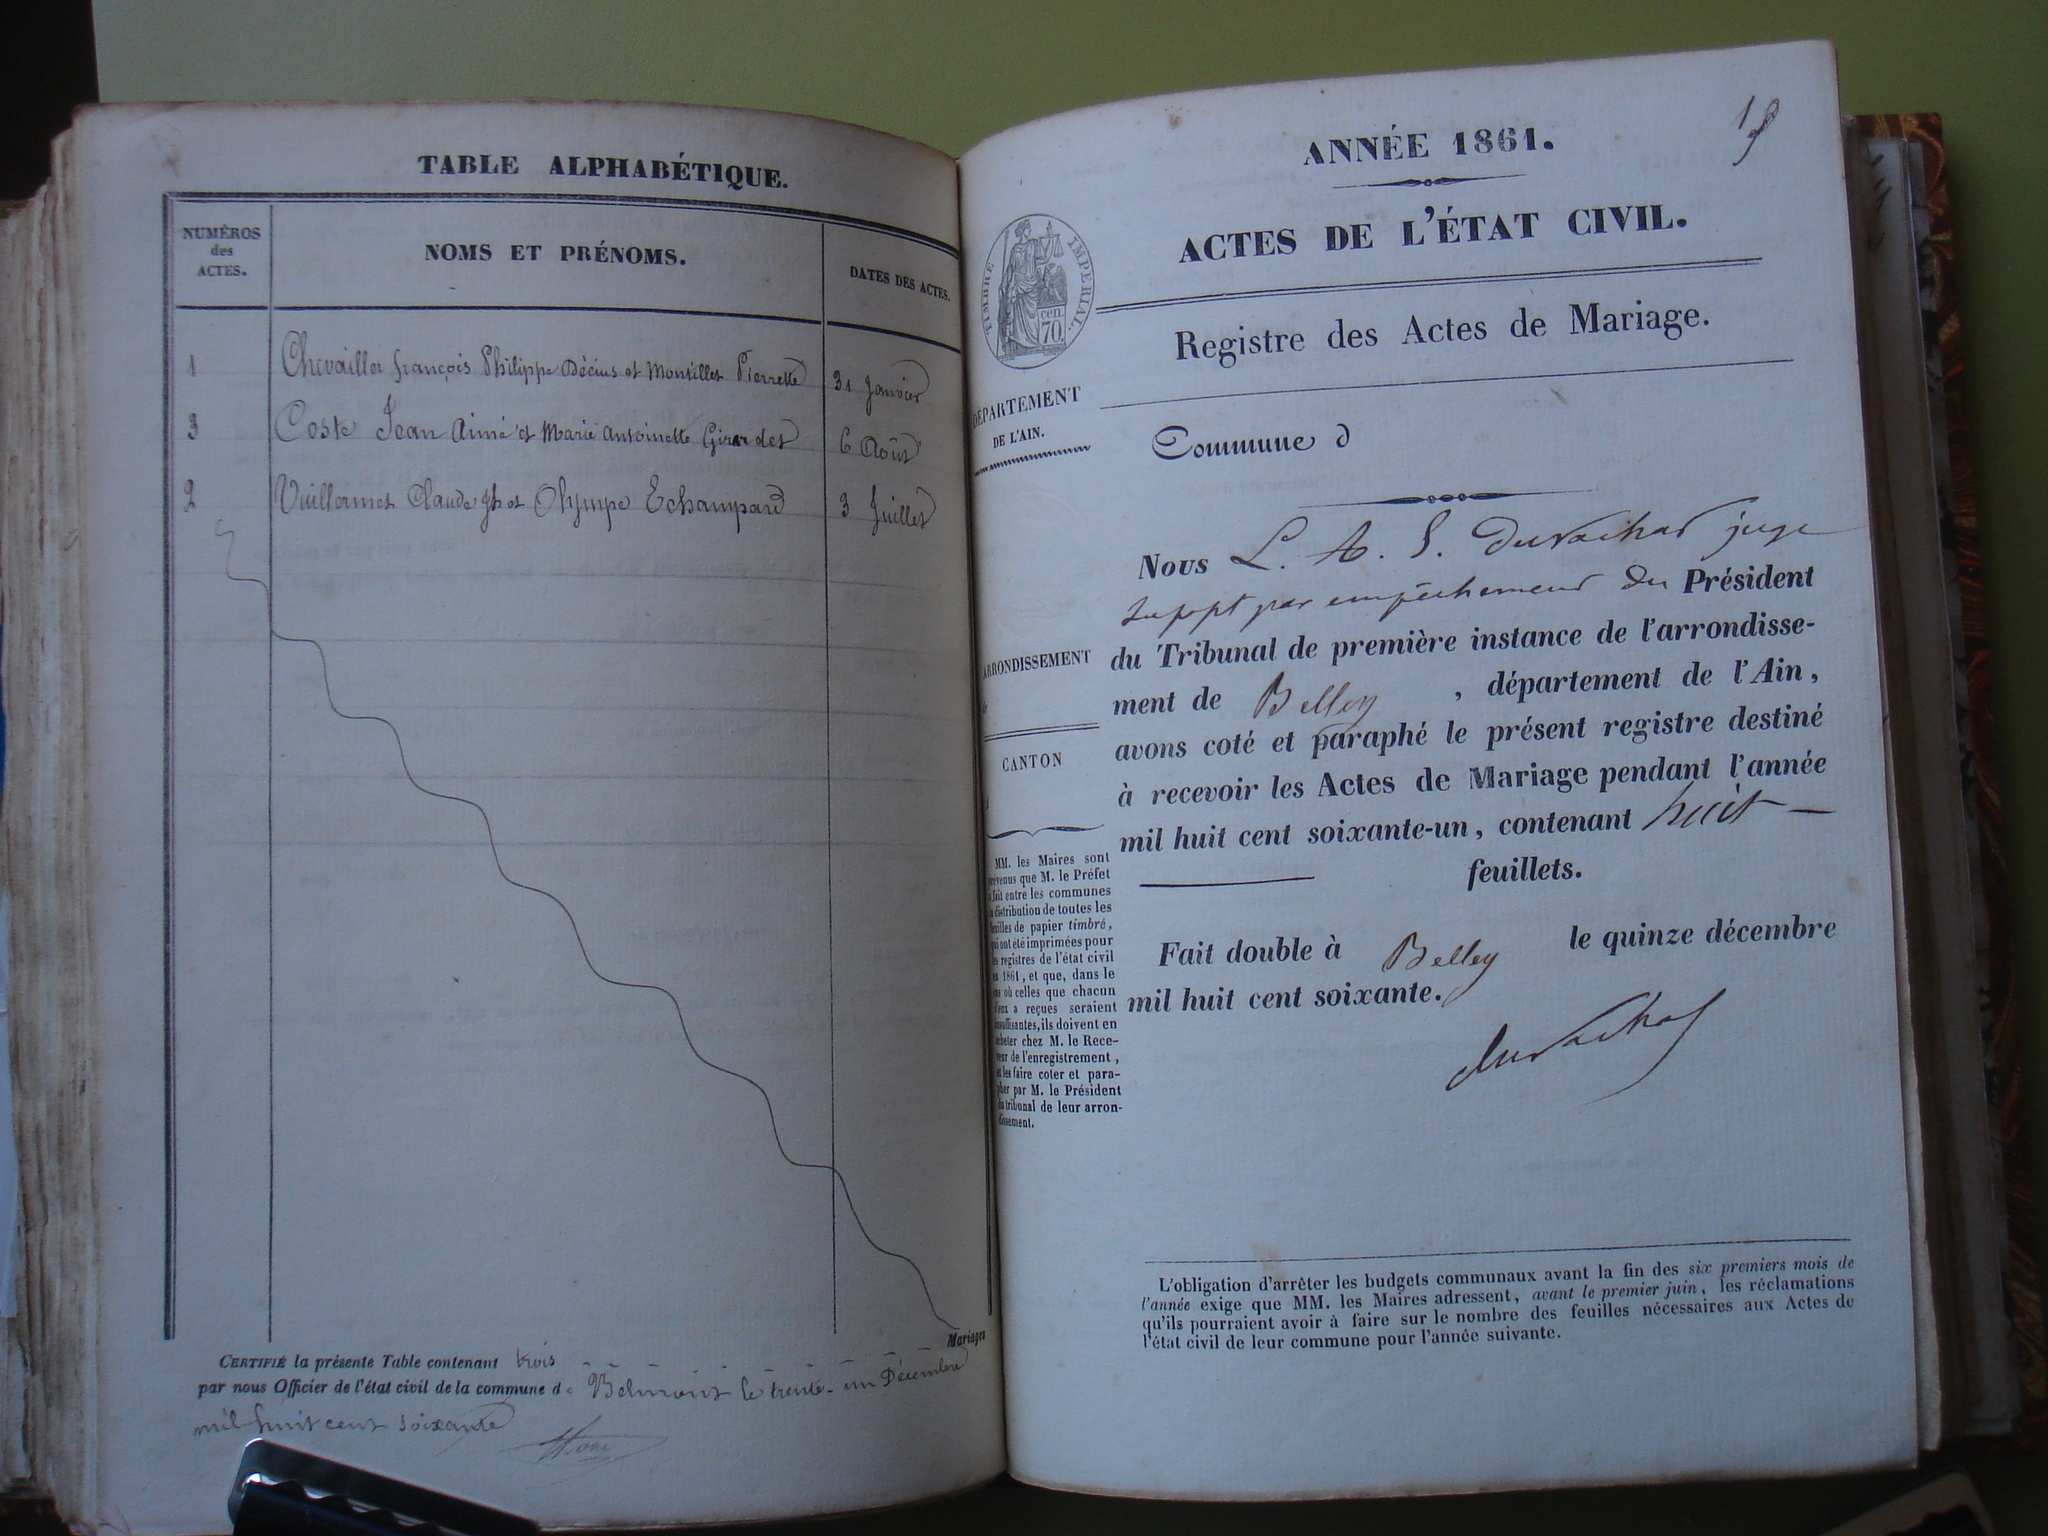 TABLE ALPHABÉTIQUE.
NUMÉROS
des
ACTES.
NOMS ET PRÉNOMS.
DATES DES ACTES.
1 Chevailler françois Philippe Décius et Montillet Pierrette 31 Janvier
3 Coste Jean Aimé et Marie Antoinette Girardet 6 Août
2 Vuillermet Claude Jh et Olympe Echampard 3 Juillet
Mariages
CERTIFIÉ la présente Table contenant trois
par nous Officier de l'état civil de la commune de Belmont le trente-un Décembre
mil huit cent soixante
1
ANNÉE 1861.
ACTES DE L'ÉTAT CIVIL.
TIMBRE IMPERIAL.
cen.
70.
Registre des Actes de Mariage.
DÉPARTEMENT
DE L'AIN.
Commune d
Nous L. A. S. Duvachat juge
suppt par empêchement du Président
du Tribunal de première instance de l'arrondisse-
ment de Belley, département de l'Ain,
avons coté et paraphé le présent registre destiné
à recevoir les Actes de Mariage pendant l'année
mil huit cent soixante-un, contenant huit
feuillets.
Fait double à Belley le quinze décembre
mil huit cent soixante.
Duvachat
ARRONDISSEMENT
CANTON
MM. les Maires sont
prévenus que M. le Préfet
a fait entre les communes
la distribution de toutes les
feuilles de papier timbré,
qui ont été imprimées pour
les registres de l'état civil
en 1861, et que, dans le
cas où celles que chacun
d'eux a reçues seraient
insuffisantes, ils doivent en
acheter chez M. le Rece-
veur de l'enregistrement,
et les faire coter et para-
pher par M. le Président
du tribunal de leur arron-
dissement.
L'obligation d'arrêter les budgets communaux avant la fin des six premiers mois de
l'année exige que MM. les Maires adressent, avant le premier juin, les réclamations
qu'ils pourraient avoir à faire sur le nombre des feuilles nécessaires aux Actes de
l'état civil de leur commune pour l'année suivante.